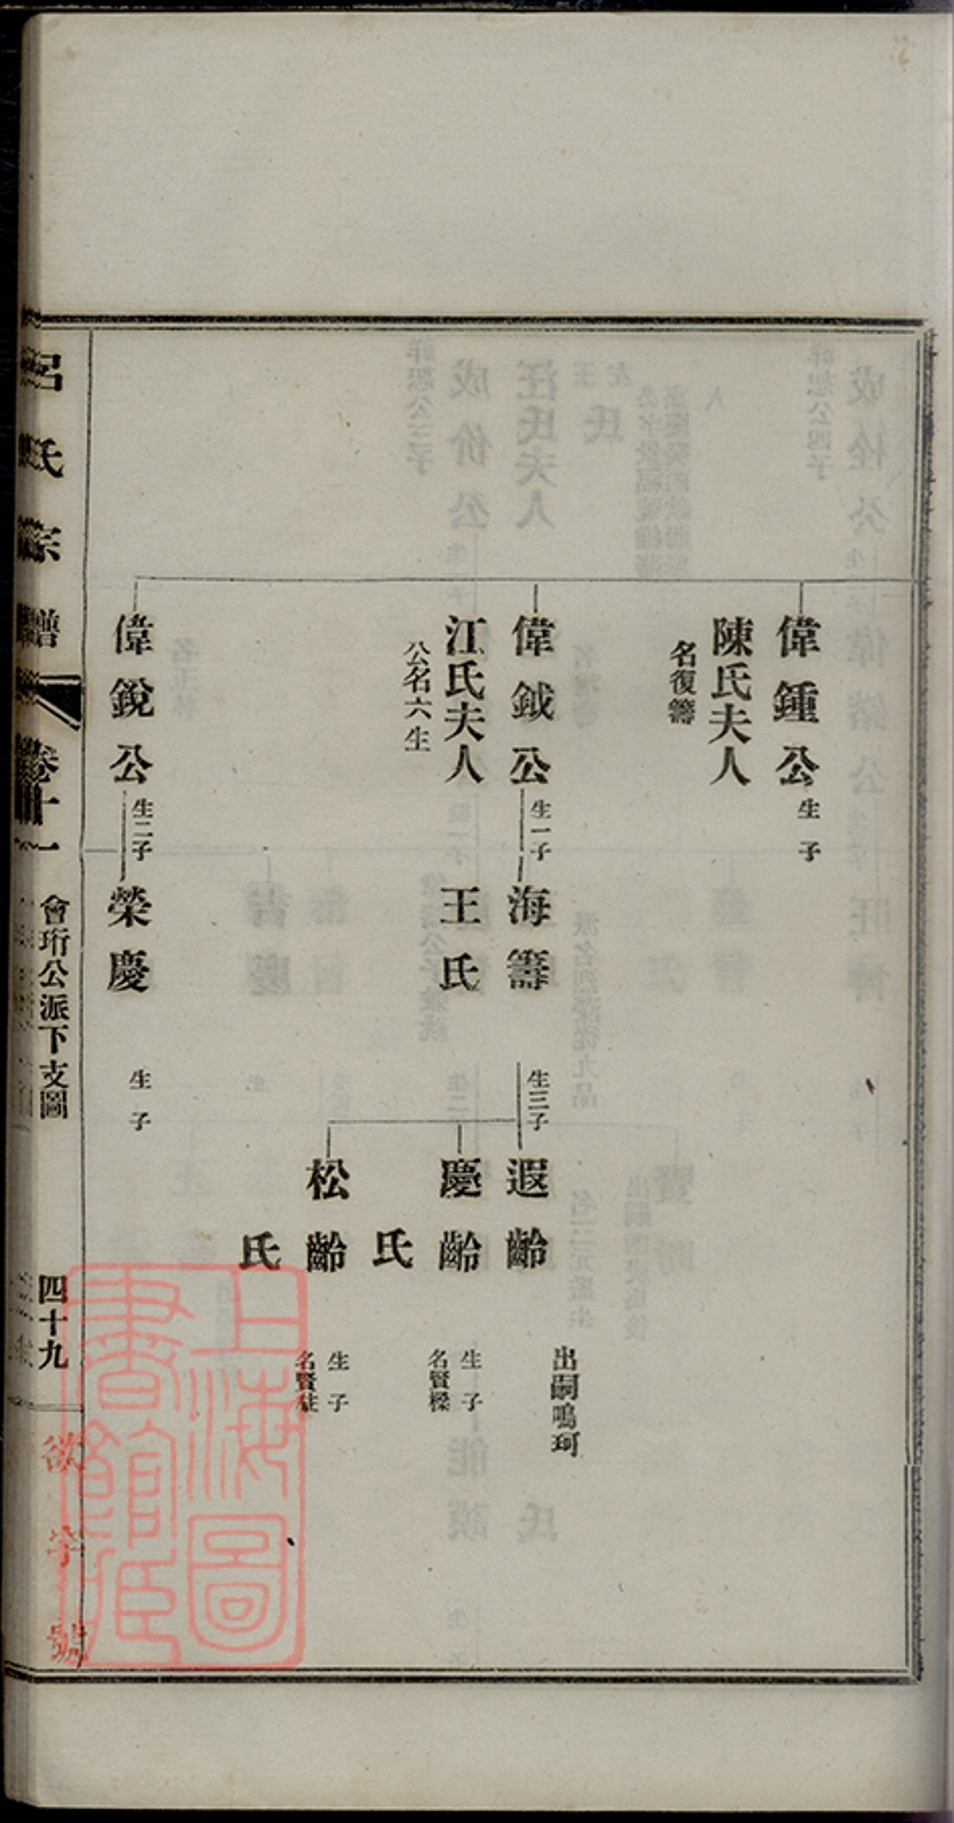 偉鍾公
生 子
陳氏夫人
名復籌
偉鉞公
生一子
海籌
生三子
遐齡
出嗣鳴珂
江氏夫人
公名六生
王氏
慶齡
生 子
名賢樑
氏
松齡
生 子
名賢
氏
偉銳公
生二子
榮慶
生 子
呂氏宗譜
卷十一
會珩公派下支圖
四十九
欲字號
上海圖書館藏